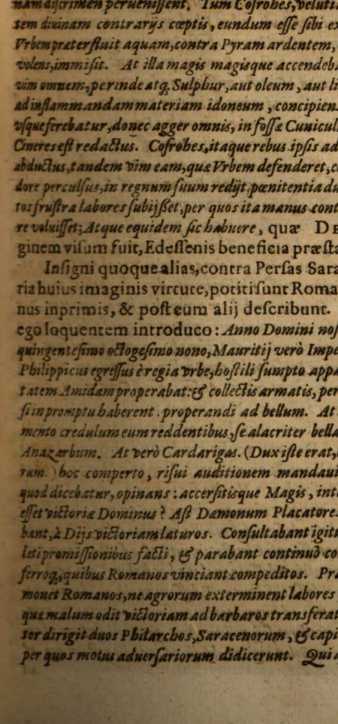 nam discrimen pervenissent. Tum Cosrohes, velut
tem divinam contrarijs cœptis, eundum esse sibi ex
Vrbem præterfluit aquam, contra Pyram ardentem,
volens, immisit. At illa magis magisque accendeb
vim omnem, perinde atq, Sulphur, aut oleum, aut l
ad inflammandam materiam idoneum, concipien
vsque ferebatur, donec agger omnis, in fossæ Cunicul
Cineres est redactus. Cosrohes, itaque rebus ipsis ad
abductus, tandem vim eam, quæ Vrbem defenderet, c
dore perculsus, in regnum suum redijt, pœnitentia du
tos frustra labores subijsset, per quos ita manus cont
re voluisset; Atque equidem sic habuere, quæ DE
ginem visum fuit, Edessenis beneficia præsta
Insigni quoque alias, contra Persas Sara
ria huius imaginis virtute, potiti sunt Roma
nus inprimis, & post eum alij describunt.
ego loquentem introduco: Anno Domini nos
quingentesimo octogesimo nono, Mauritij verò Impe
Philippicus egressus è regia vrbe, hostili sumpto appa
tatem Amidam properabat: & collectis armatis, per
si in promptu haberent. properandi ad bellum. At
mento credulum eum reddentibus, se alacriter bella
Anazarbum. At verò Cardarigas. (Dux iste erat,
rum) hoc comperto, risui auditionem mandaui
quod dicebatur, opinans: accersitisque Magis, int
esset victoriæ Dominus? Ast Dæmonum Placatore
bant, à Dijs victoriam laturos. Consultabant igitu
leti promissionibus facti, & parabant continuò co
ferroq, quibus Romanos vinciant compeditos. Pr
monet Romanos, ne agrorum exterminent labores
quæ malum odit victoriam ad barbaros transferat
ter dirigit duos Philarchos, Saracenorum, & capi
per quos motus adversariorum didicerunt. Qui a